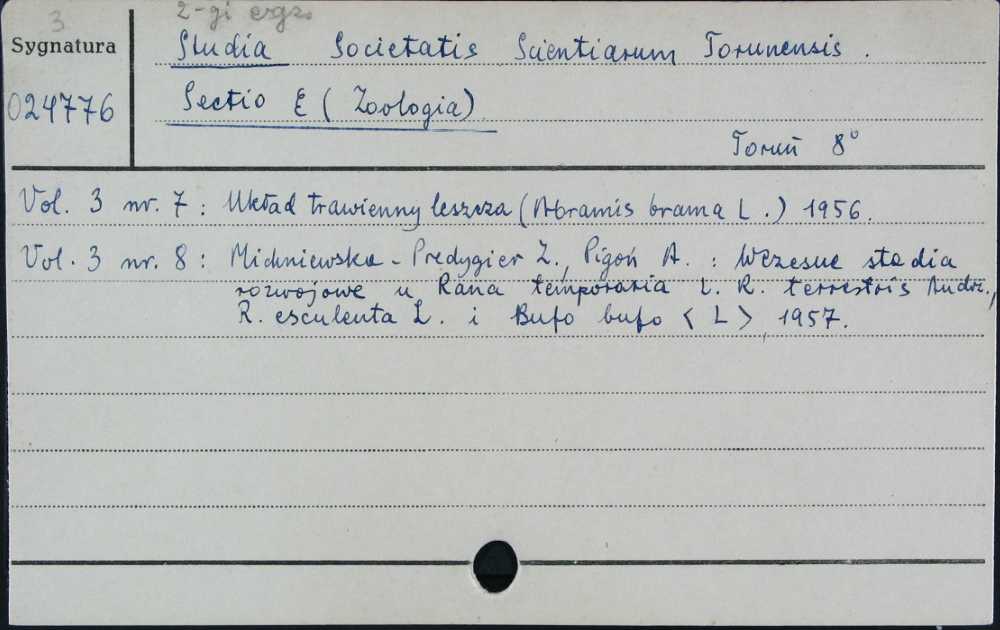 3 2-gi egz.
Sygnatura Studia Societatis Scientiarum Torunensis.
024776 Sectio E (Zoologia)
Toruń 8°
Vol. 3 nr. 7: Układ trawienny leszcza (Abramis brama L.) 1956.
Vol. 3 nr. 8: Michniewska-Predygier Z., Pigoń A.: Wczesne stadia
rozwojowe u Rana temporaria L. R. terrestris Andrz.,
R. esculenta L. i Bufo bufo <L> 1957.